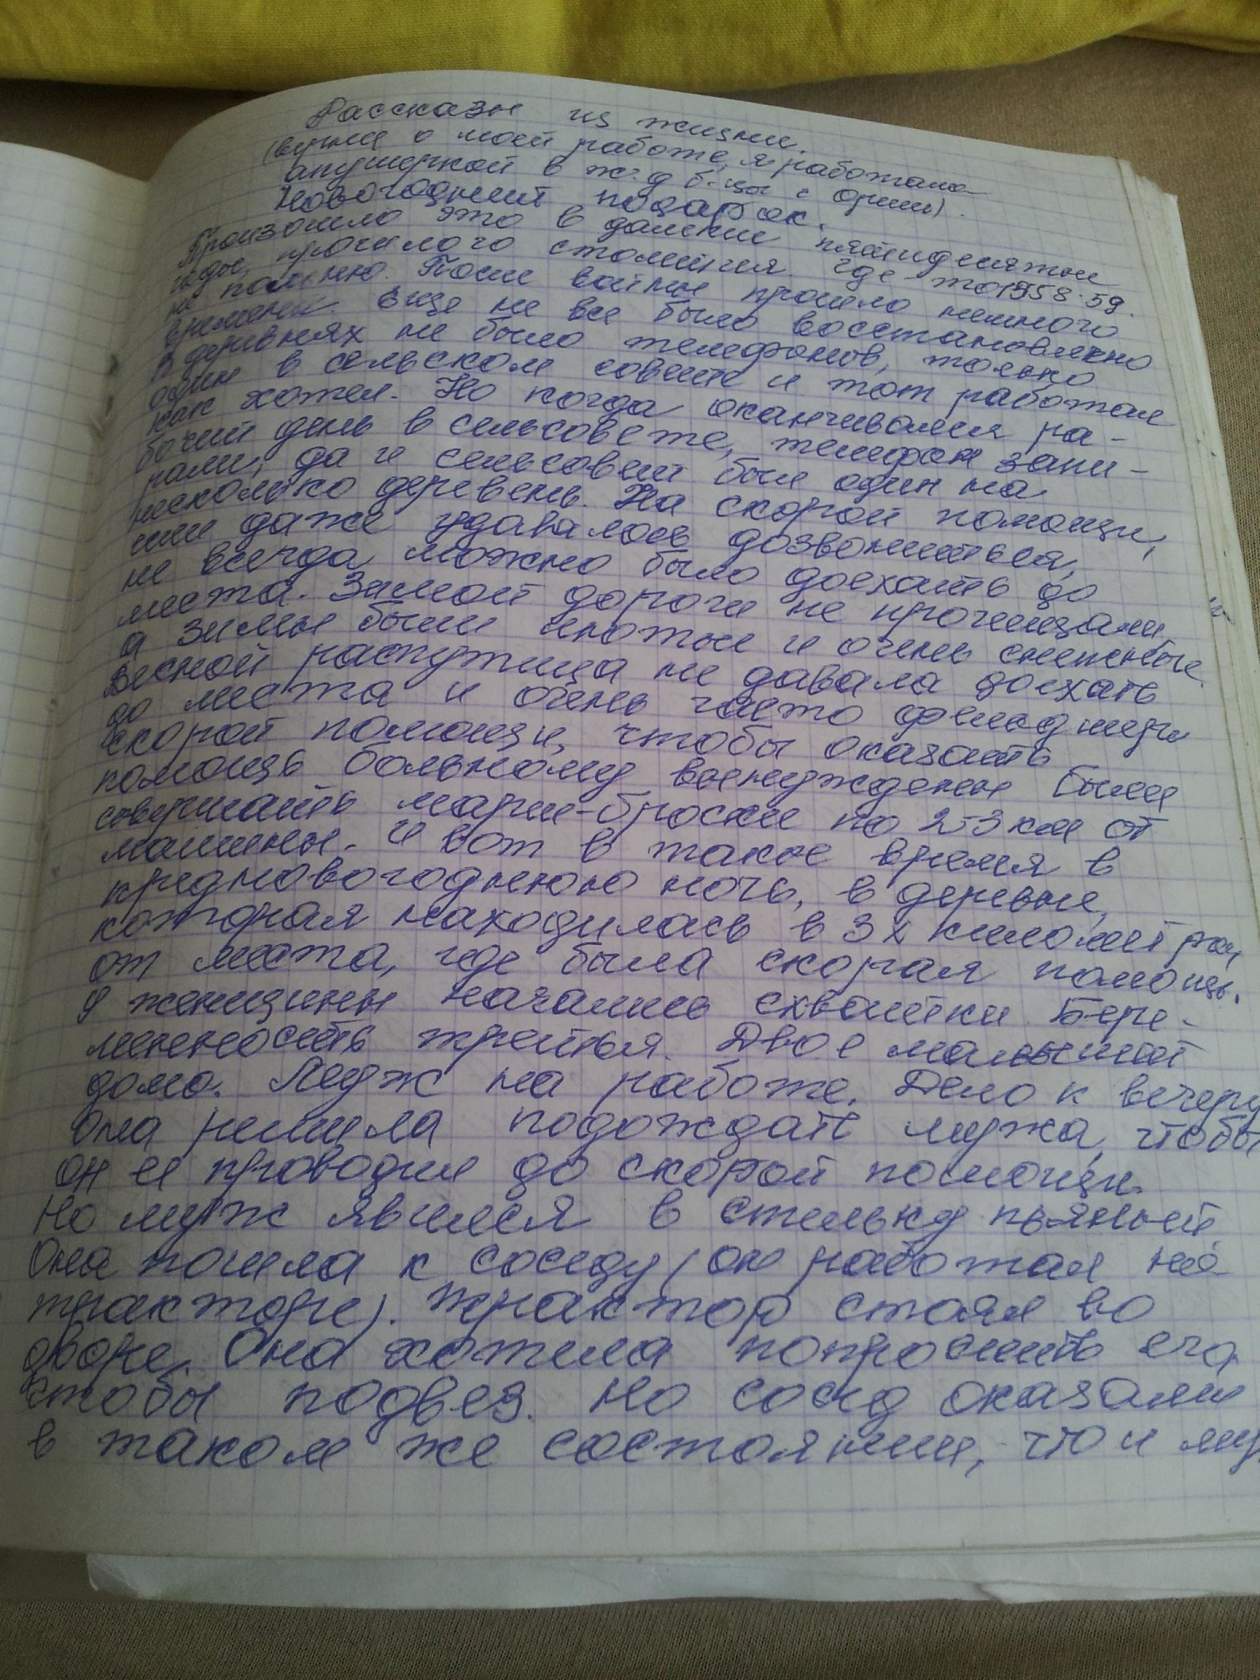 Рассказы из жизни.
(внуче о моей работе, я работала
акушеркой в ж.д б-цы г Орши).
Новогодний подарок.
Произошло это в далекие пятидесятые
годы прошлого столетия где то 1958-59.
не помню. После войны прошло немного
времени. Еще не все было восстановлено
В деревнях не было телефонов, только
один в сельском совете и тот работал
как хотел. Но когда оканчивался ра-
бочий день в сельсовете, телефон запи-
рали, да и сельсовет был один на
несколько деревень. На скорой помощи,
если даже удавалось дозвониться,
не всегда можно было доехать до
места. Зимой дороги не прочищали,
а зимы были лютые и очень снежные.
Весной распутица не давала доехать
до места и очень часто фельдшера
скорой помощи, чтобы оказать
помощь больному вынуждены были
совершать марш-броски по 2-3 км от
машины. И вот в такое время в
предновогоднюю ночь, в деревне,
которая находилась в 3х километрах
от места, где была скорая помощь.
у женщины начались схватки. Бере-
менность третья. Двое малышей
дома. Муж на работе. Дело к вечеру
Она решила подождать мужа, чтобы
он ее проводил до скорой помощи.
Но муж явился в стельку пьяный.
Она пошла к соседу (он работал на
тракторе). Трактор стоял во
дворе. Она хотела попросить его,
чтобы подвез. Но сосед оказался
в таком же состоянии, что и му